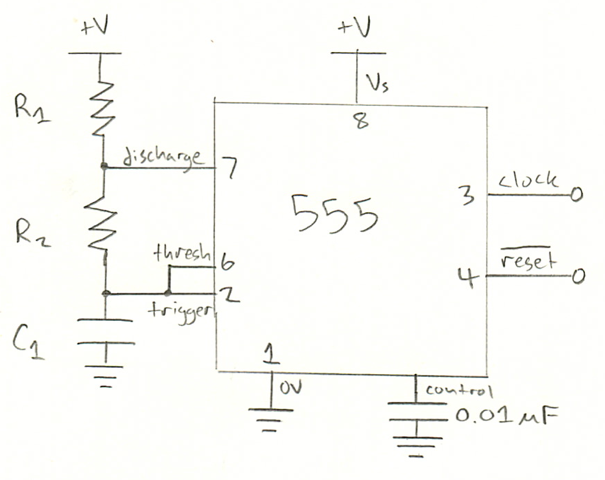 +V
+V
R1
Vs
8
discharge 7
3 clock
555
R2
thresh 6
4 reset
2
trigger
C1
1
0V
control
0.01 µF